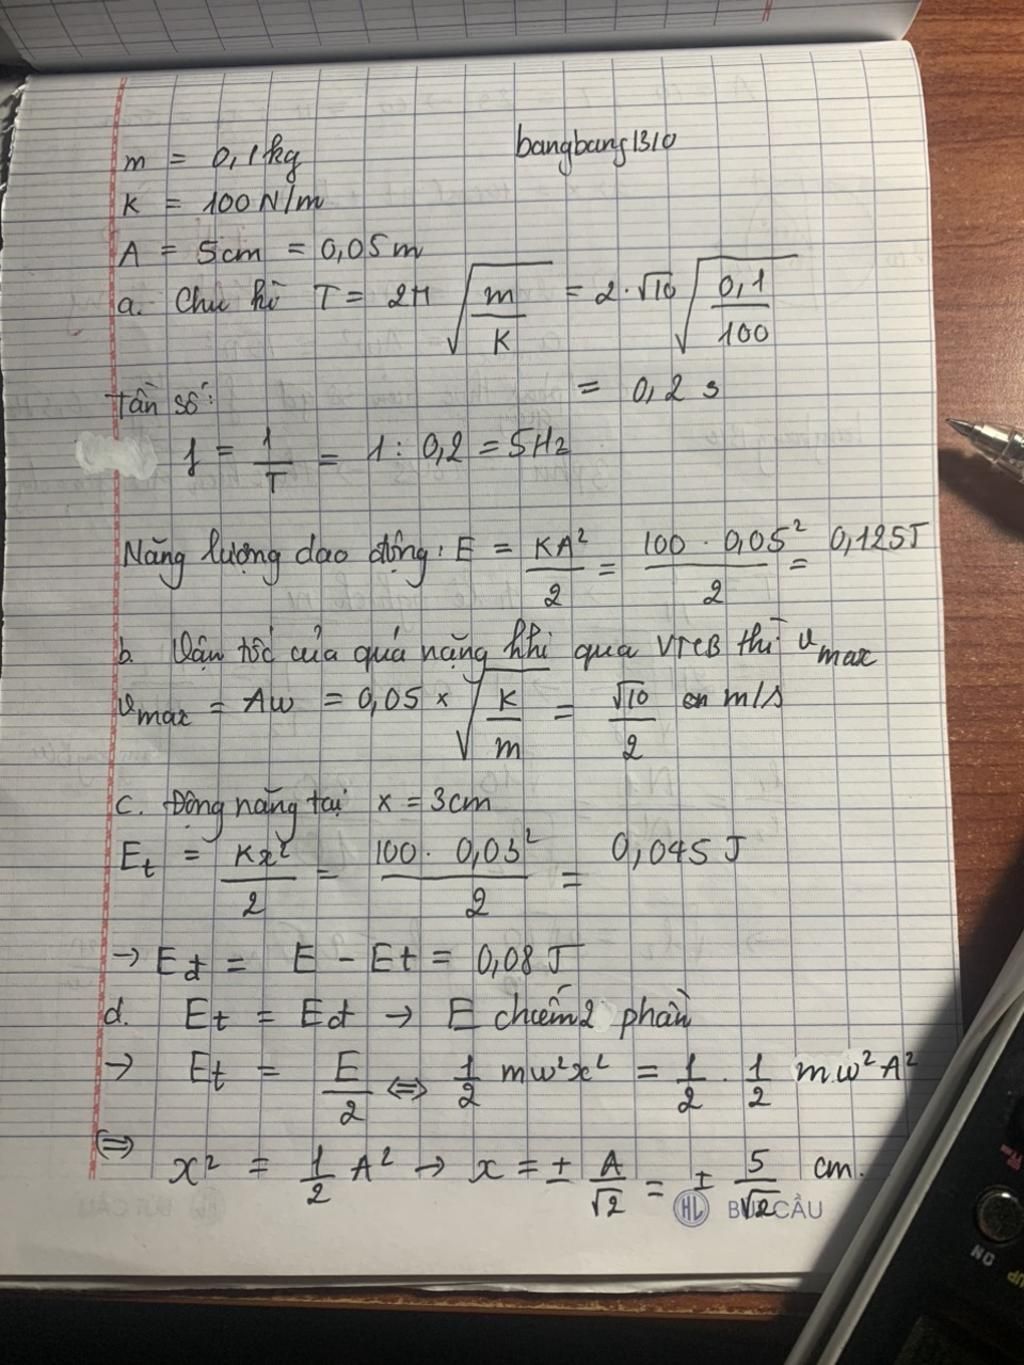 bangbang1310
m = 0,1kg
K = 100 N/m
A = 5cm = 0,05m
a. Chu kì T = 2π √(m/K) = 2.√10 √(0,1/100)
= 0,2 s
Tần số:
f = 1/T = 1 : 0,2 = 5Hz
Năng lượng dao động: E = KA²/2 = 100 . 0,05²/2 = 0,125J
b. Vận tốc của quả nặng khi qua VTCB thì vmax
vmax = Aω = 0,05 × √(K/m) = √10/2 m/s
c. Động năng tại x = 3cm
Et = Kx²/2 = 100 . 0,03²/2 = 0,045 J
→ Eđ = E - Et = 0,08 J
d. Et = Eđ → E chiếm 2 phần
→ Et = E/2 ⇔ 1/2 mω²x² = 1/2 . 1/2 mω²A²
⇔ x² = 1/2 A² → x = ± A/√2 = ± 5/√2 cm.
HL BÚT CẦU
NO
UP